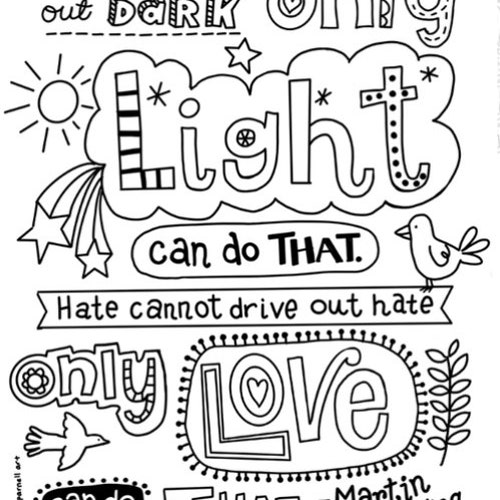 out DARK only
Light
can do THAT.
Hate cannot drive out hate
only LOVE
can do THAT
Martin
parnell art